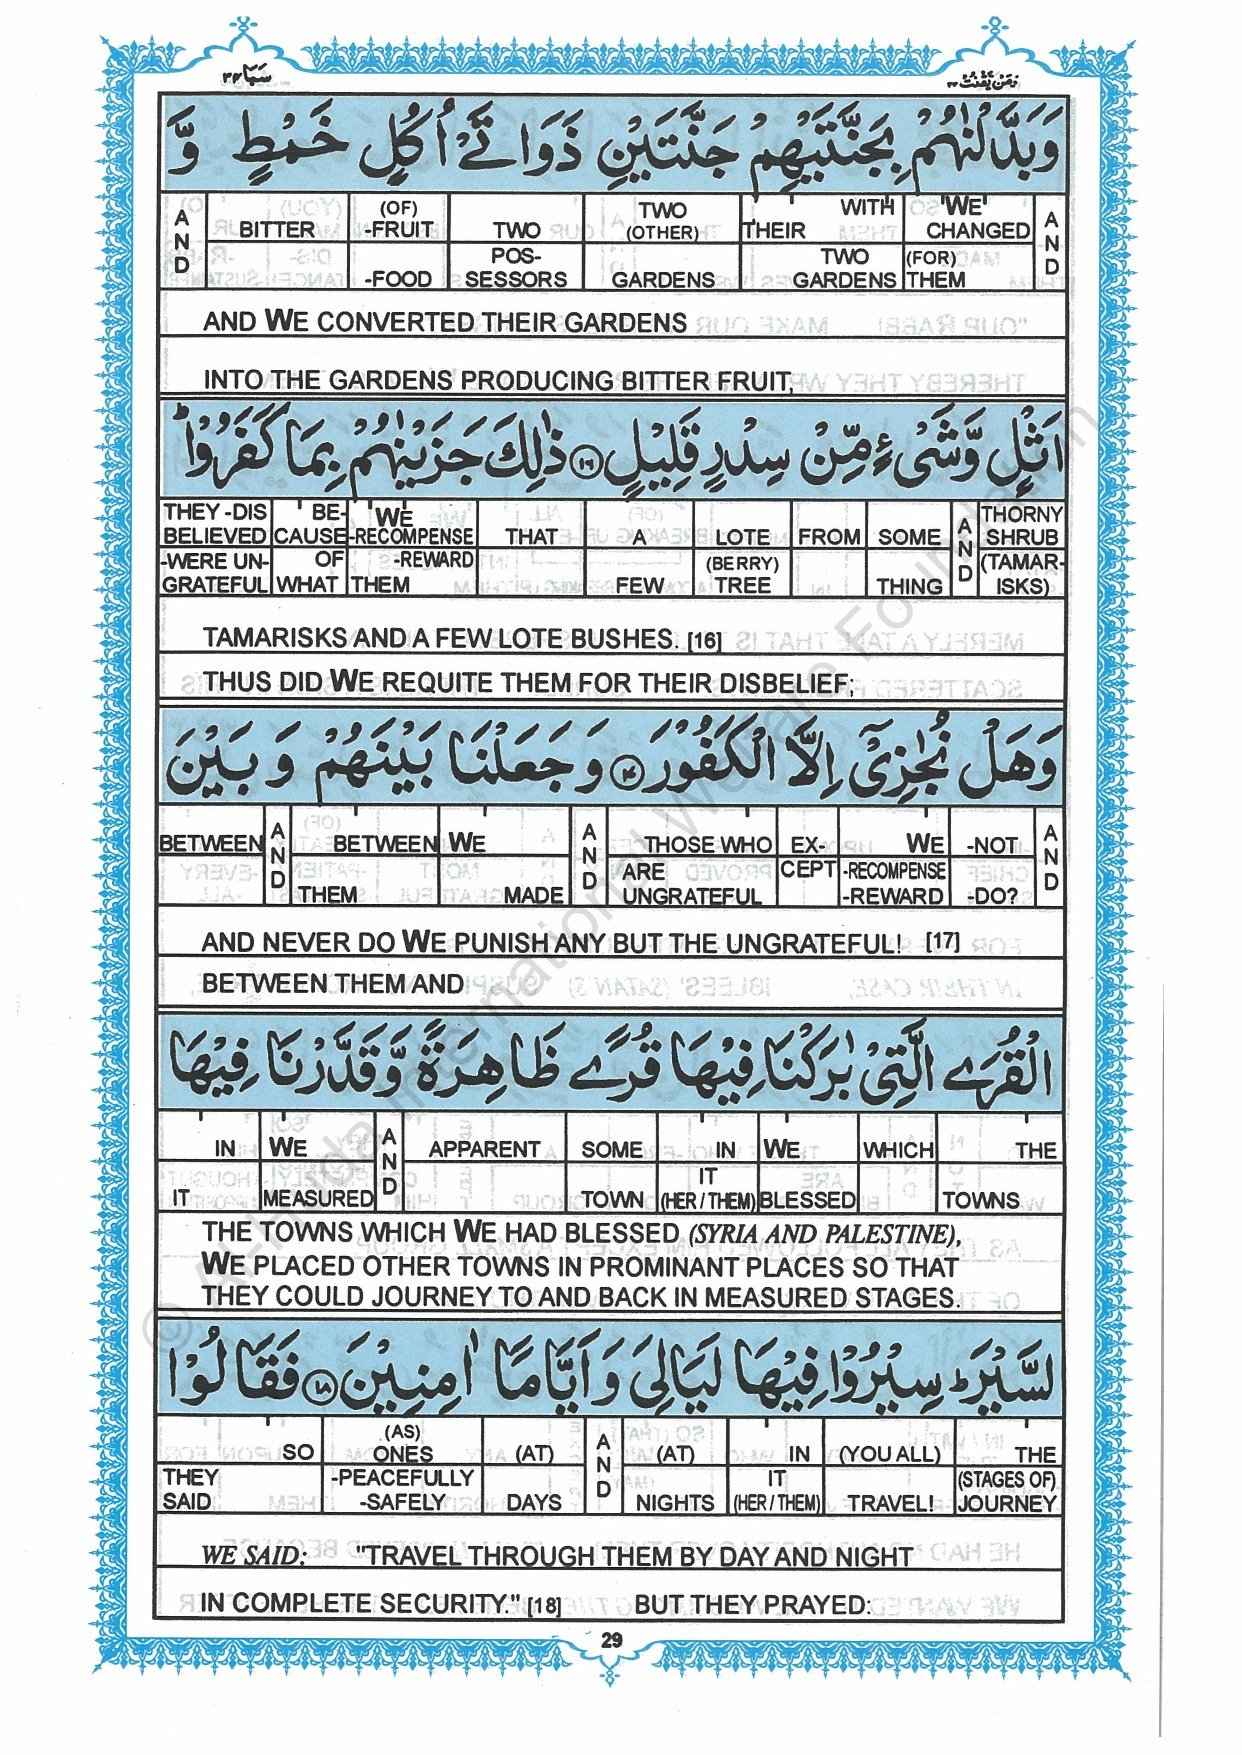 سَبَا ٣٤
وَمَنْ يَّقْنُتْ ٢٢
وَبَدَّلْنٰهُمْ بِجَنَّتَيْهِمْ جَنَّتَيْنِ ذَوَاتَىْ اُكُلٍ خَمْطٍ وَّ
AND BITTER (OF) -FRUIT TWO TWO (OTHER) THEIR WITH 'WE' CHANGED AND
-FOOD POS-SESSORS GARDENS TWO GARDENS (FOR) THEM
AND WE CONVERTED THEIR GARDENS
INTO THE GARDENS PRODUCING BITTER FRUIT,
اَثْلٍ وَّشَىْءٍ مِّنْ سِدْرٍ قَلِيْلٍ ١٦ ذٰلِكَ جَزَيْنٰهُمْ بِمَا كَفَرُوْا ط
THEY -DIS BELIEVED BE- CAUSE WE -RECOMPENSE THAT A LOTE FROM SOME AND THORNY SHRUB
-WERE UN- GRATEFUL OF WHAT -REWARD THEM FEW (BERRY) TREE THING (TAMAR- ISKS)
TAMARISKS AND A FEW LOTE BUSHES. [16]
THUS DID WE REQUITE THEM FOR THEIR DISBELIEF;
وَهَلْ نُجٰزِىْٓ اِلَّا الْكَفُوْرَ ١٧ وَجَعَلْنَا بَيْنَهُمْ وَبَيْنَ
BETWEEN AND BETWEEN WE AND THOSE WHO EX- WE -NOT AND
THEM MADE ARE UNGRATEFUL CEPT -RECOMPENSE -REWARD -DO?
AND NEVER DO WE PUNISH ANY BUT THE UNGRATEFUL! [17]
BETWEEN THEM AND
الْقُرَى الَّتِىْ بٰرَكْنَا فِيْهَا قُرًى ظَاهِرَةً وَّقَدَّرْنَا فِيْهَا
IN WE AND APPARENT SOME IN WE WHICH THE
IT MEASURED TOWN IT (HER / THEM) BLESSED TOWNS
THE TOWNS WHICH WE HAD BLESSED (SYRIA AND PALESTINE),
WE PLACED OTHER TOWNS IN PROMINANT PLACES SO THAT
THEY COULD JOURNEY TO AND BACK IN MEASURED STAGES.
السَّيْرَ ط سِيْرُوْا فِيْهَا لَيَالِىَ وَاَيَّامًا اٰمِنِيْنَ ١٨ فَقَالُوْا
SO (AS) ONES (AT) AND (AT) IN (YOU ALL) THE
THEY SAID -PEACEFULLY -SAFELY DAYS NIGHTS IT (HER / THEM) TRAVEL! (STAGES OF) JOURNEY
WE SAID: "TRAVEL THROUGH THEM BY DAY AND NIGHT
IN COMPLETE SECURITY." [18] BUT THEY PRAYED:
29
© Al-Huda International Welfare Foundation